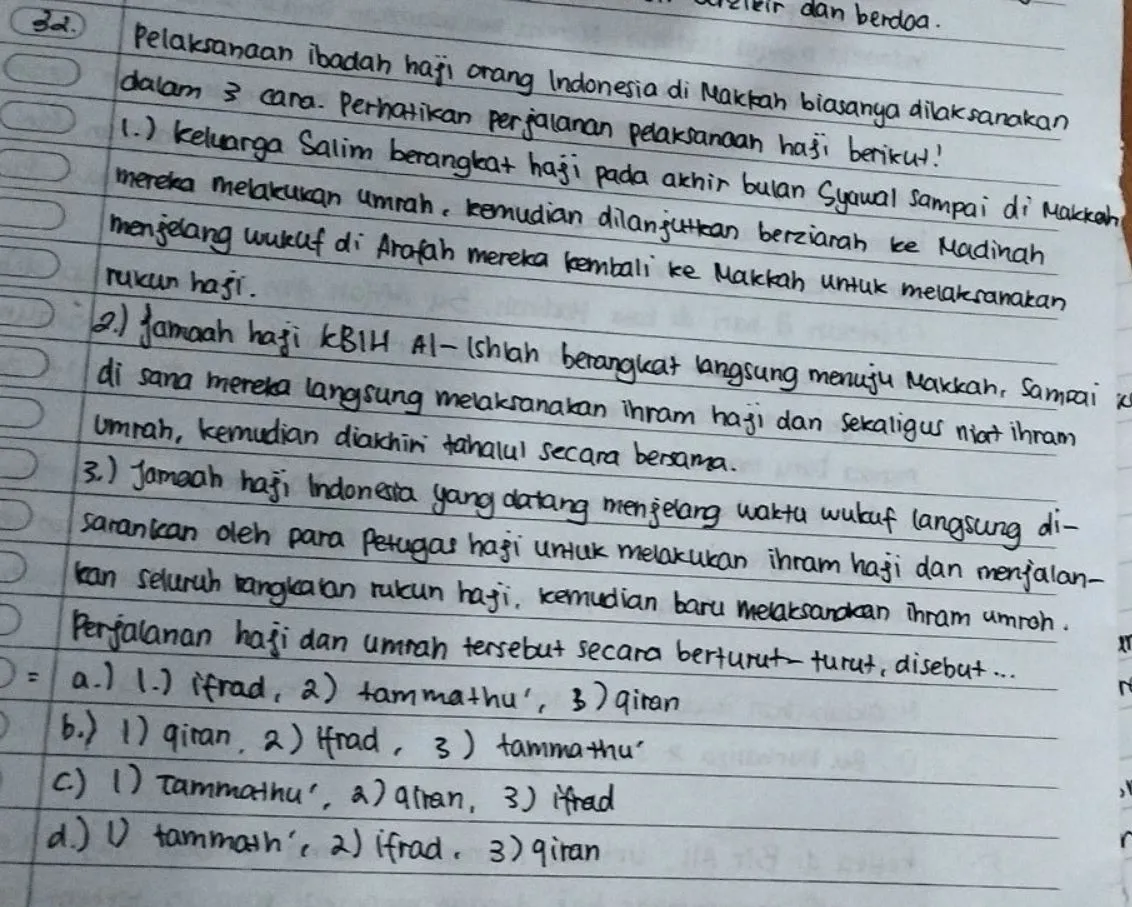 dan berdoa.
32.) Pelaksanaan ibadah haji orang Indonesia di Makkah biasanya dilaksanakan
dalam 3 cara. Perhatikan perjalanan pelaksanaan haji berikut!
1.) Keluarga Salim berangkat haji pada akhir bulan Syawal sampai di Makkah
mereka melakukan umrah, kemudian dilanjutkan berziarah ke Madinah
menjelang wukuf di Arafah mereka kembali ke Makkah untuk melaksanakan
rukun haji.
2.) Jamaah haji KBIH Al-Ishlah berangkat langsung menuju Makkah, Sampai
di sana mereka langsung melaksanakan ihram haji dan sekaligus niat ihram
umrah, kemudian diakhiri tahalul secara bersama.
3.) Jamaah haji Indonesia yang datang menjelang waktu wukuf langsung di-
sarankan oleh para petugas haji untuk melakukan ihram haji dan menjalan-
kan seluruh rangkaian rukun haji, kemudian baru melaksanakan ihram umroh.
Perjalanan haji dan umrah tersebut secara berturut-turut, disebut...
= a.) 1.) ifrad, 2) tammathu', 3) qiran
b.) 1) qiran, 2) Ifrad, 3) tammathu'
c.) 1) Tammathu', 2) qiran, 3) ifrad
d.) 1) tammath', 2) ifrad, 3) qiran